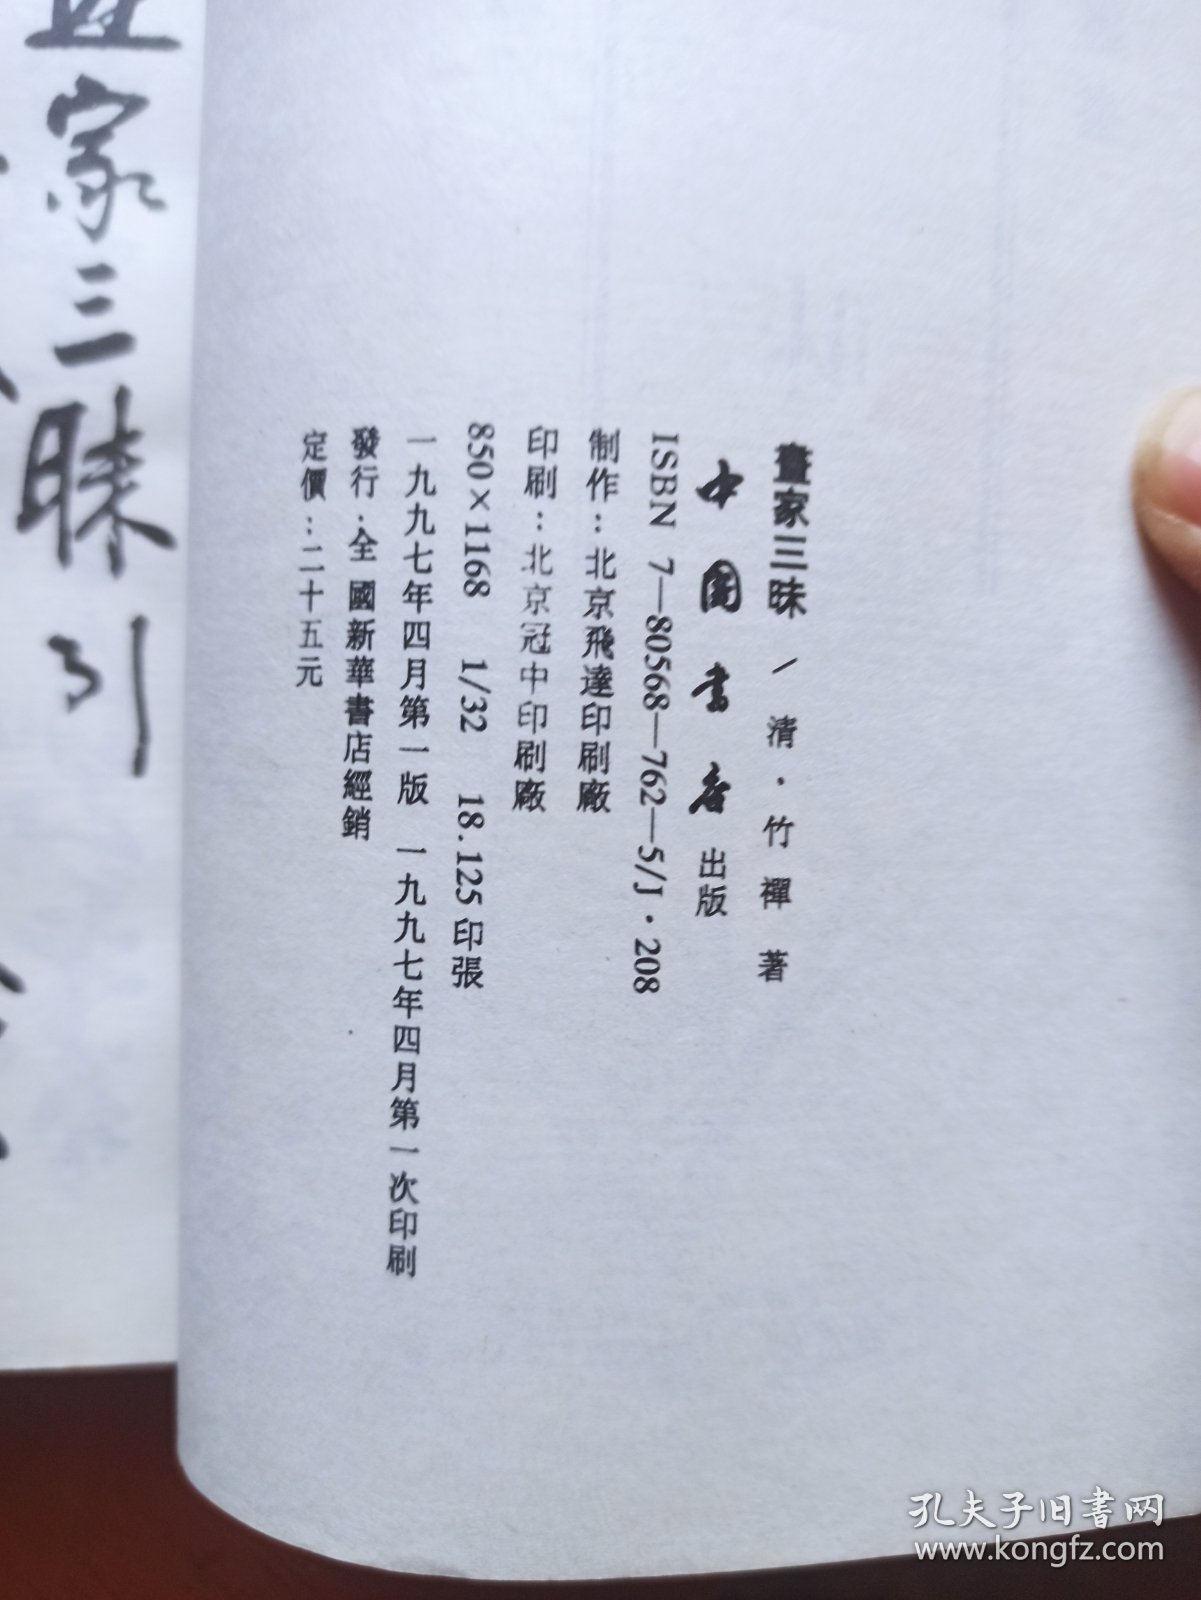 畫家三昧 / 清·竹禪 著
中國書店出版
ISBN 7—80568—762—5/J·208
制作：北京飛達印刷廠
印刷：北京冠中印刷廠
850×1168 1/32 18.125印張
一九九七年四月第一版 一九九七年四月第一次印刷
發行：全國新華書店經銷
定價：二十五元
家三昧引
孔夫子旧書网
www.kongfz.com